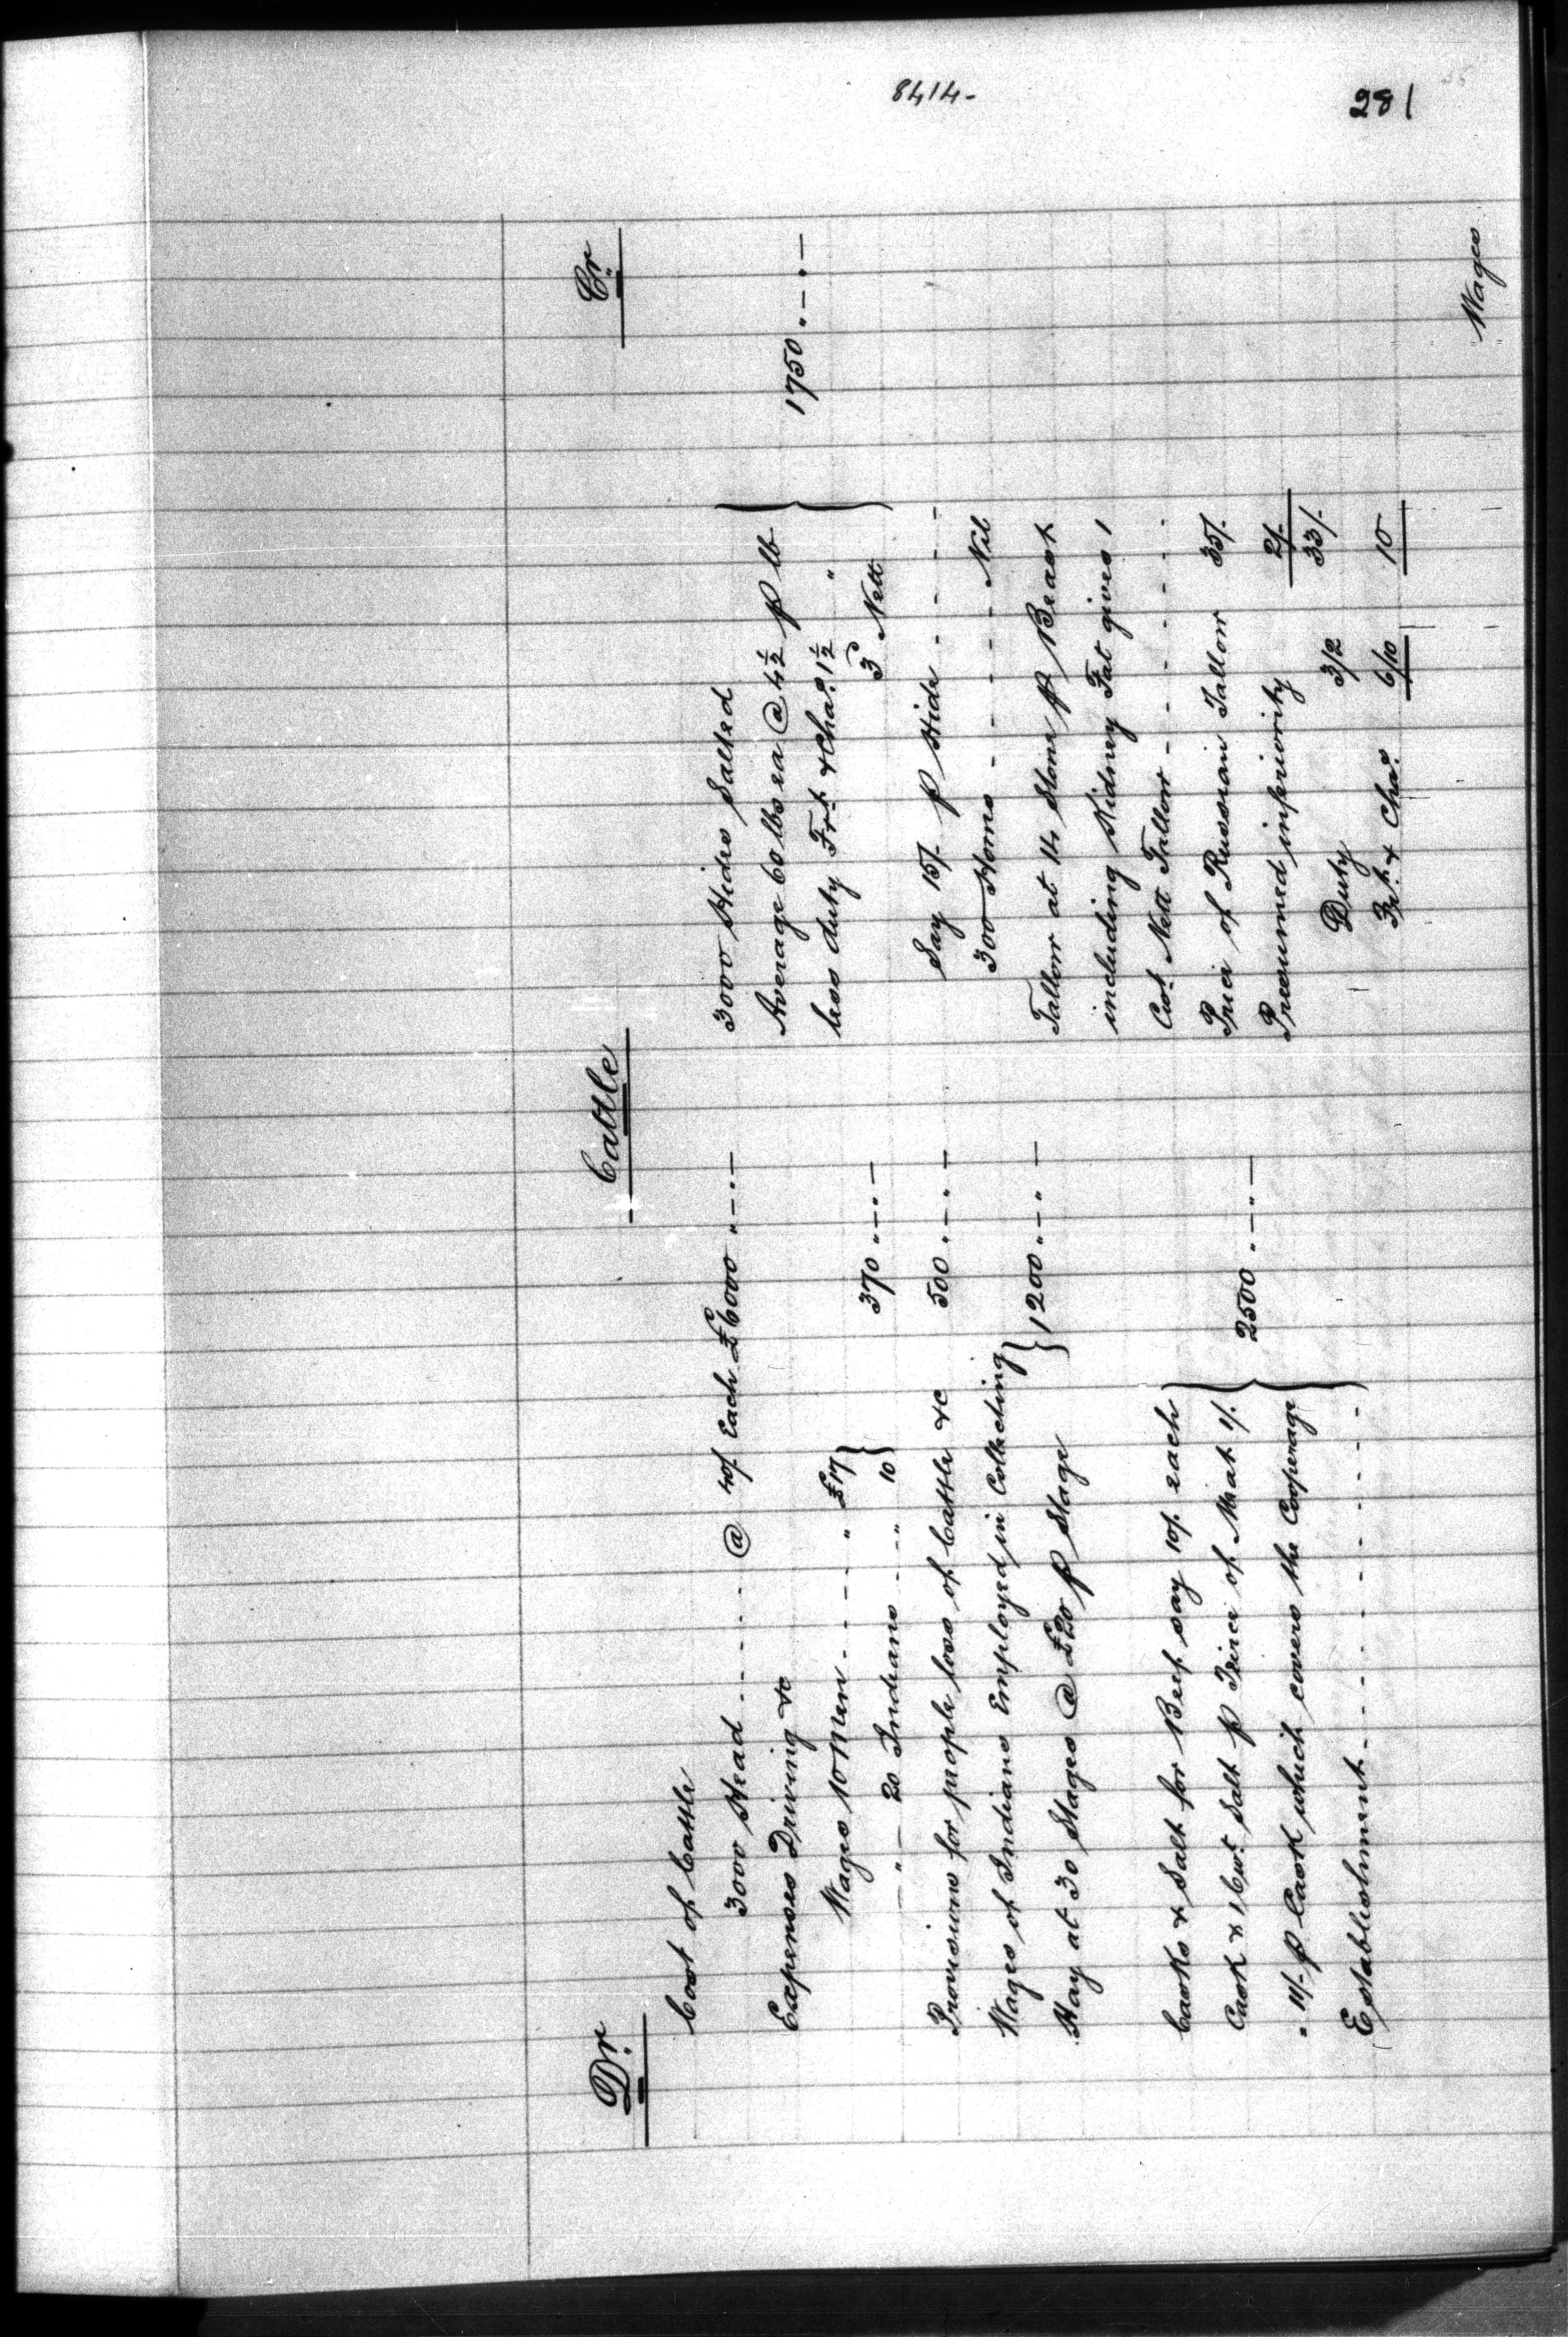 8414-
281
Dr. Cattle Cr.
Cost of Cattle
3000 Head - - - - @ 40/. Each £6000 " — " —
Expenses Driving &c
Wages 10 Men - - - - " £17
" — 20 Indians - - " 10 } 370 " — " —
Provisions for people loss of Cattle &c 500 " — " —
Wages of Indians Employed in Collecting
Hay at 30 Stages @ £20 p Stage } 1200 " — " —
Casks & Salt for Beef say 10/. each
Cask & 1 Cwt Salt p Teirce of Meat 1/.
" 11/- p Cask which covers the Cooperage } 2500 " — " —
Establishment - - - - - - - -
3000 Hides Salted
Average 60 lbs ea @ 4½ p lb
less duty Frt. & Chas. 1½ "
3 Nett } 1750 " — " —
Say 15/- p Hide - - - - -
300 Horns - - - - - - Nil
Tallow at 14 Stone p Beast
including Kidney Fat gives 1
Cwt. Nett Tallow - - - - - -
Price of Russian Tallow 35/.
Presumed inferiority 2/-
33/-
Duty 3/2
Frt. & Chas. 6/10 10
Wages